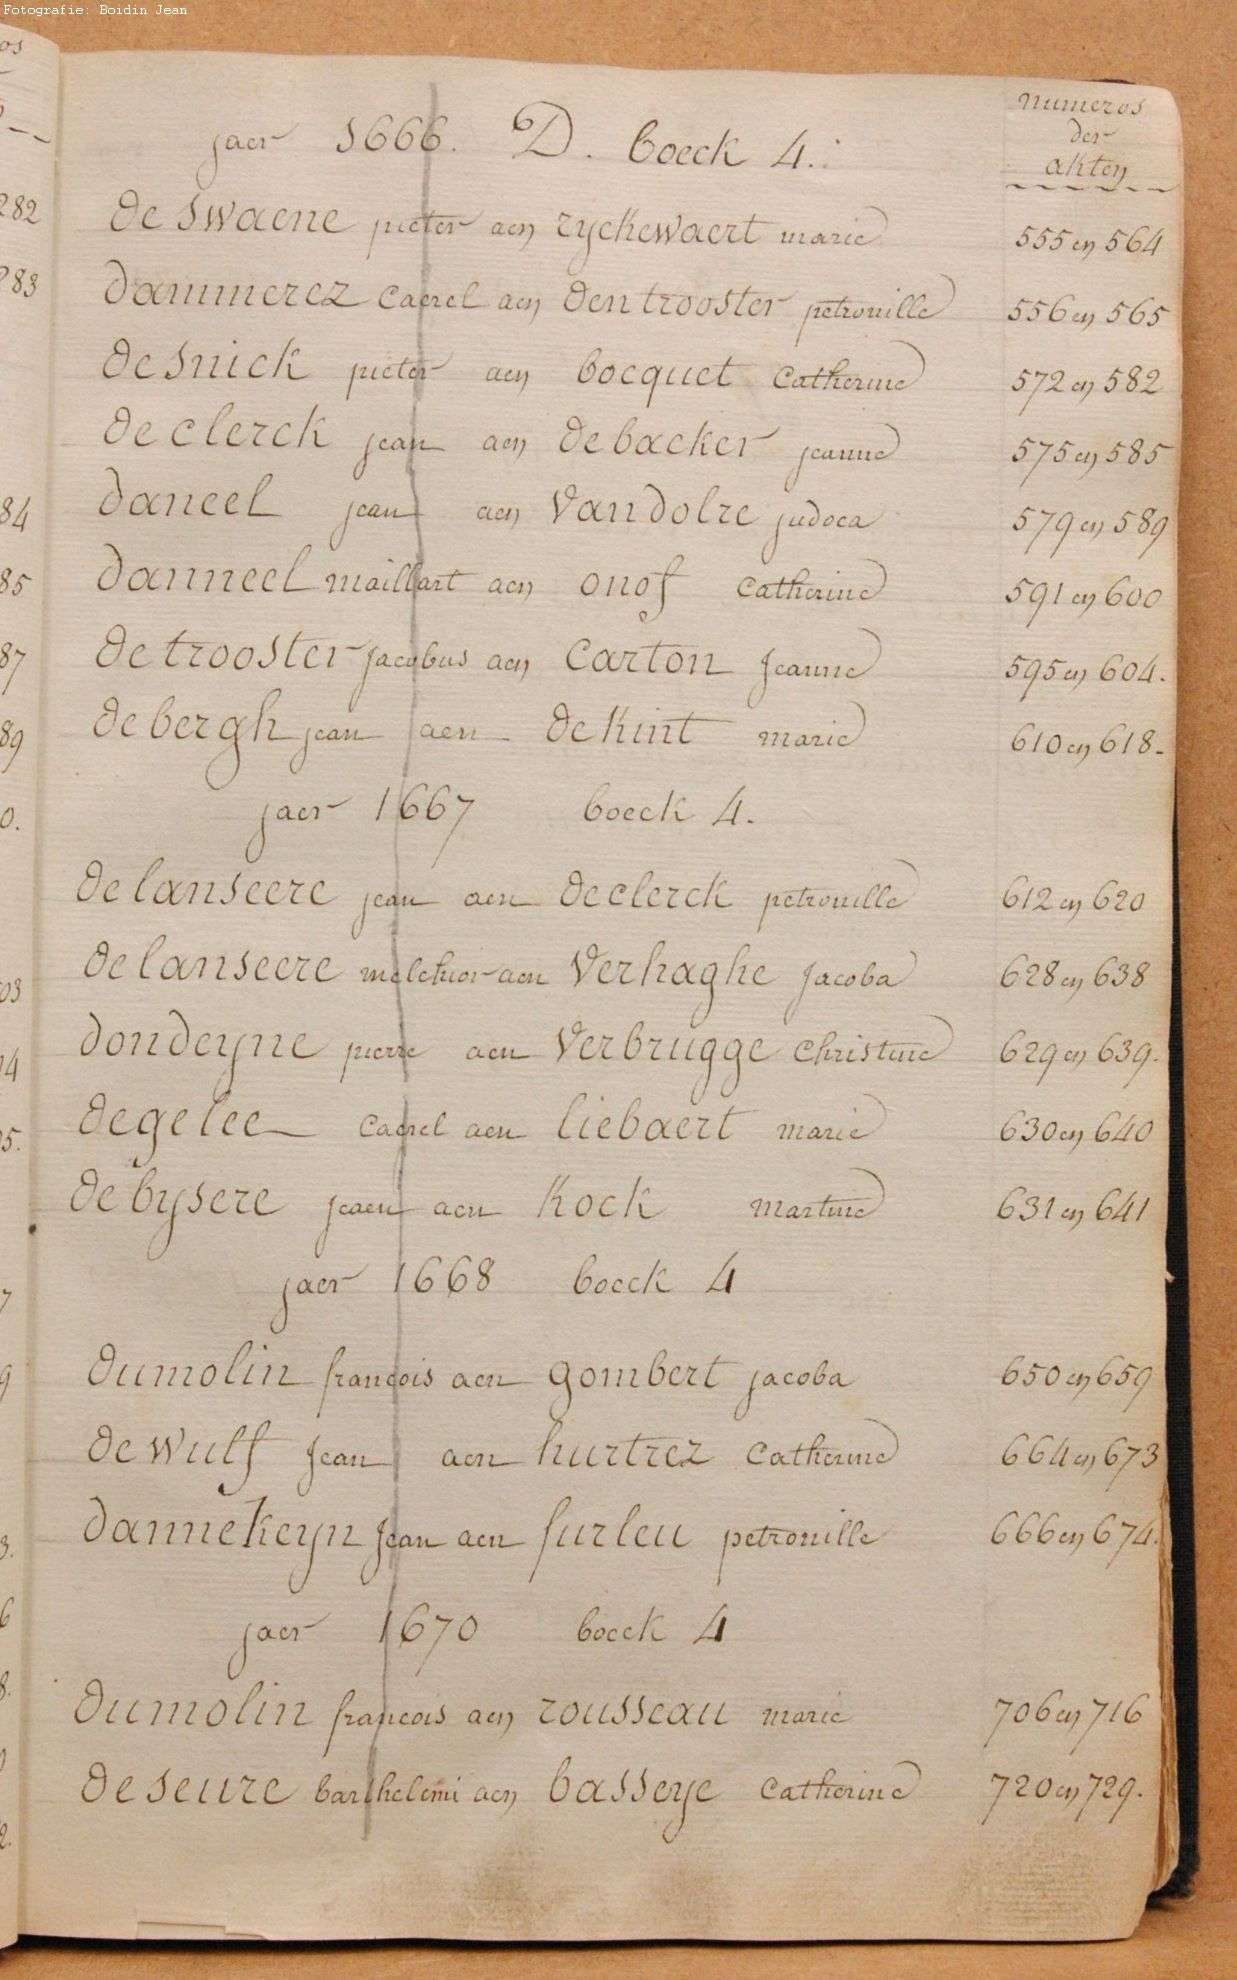 Fotografie: Boidin Jean
numeros
der
akten
jaer 1666. D. boeck 4.
de swaene pieter aen ryckewaert marie 555 en 564
dammerez Caerel aen dentrooster petronille 556 en 565
desnick pieter aen bocquet Catherine 572 en 582
declerck jean aen debacker jeanne 575 en 585
daneel jean aen Vandolre judoca 579 en 589
danneel maillart aen onof Catherine 591 en 600
detrooster jacobus aen Carton Jeanne 595 en 604.
debergh jean aen dekint marie 610 en 618.
jaer 1667 boeck 4.
delanseere jean aen declerck petronille 612 en 620
delanseere melchior aen Verhaghe Jacoba 628 en 638
dondeyne pierre aen Verbrugge Christine 629 en 639.
degelee Caerel aen liebaert marie 630 en 640
debysere jeaen aen Kock martine 631 en 641
jaer 1668 boeck 4
dumolin francois aen gombert jacoba 650 en 659
dewulf Jean aen hurtrez Catherine 664 en 673
dannekeyn Jean aen furleu petronille 666 en 674.
jaer 1670 boeck 4
dumolin francois aen rousseau marie 706 en 716
deseure barthelemi aen basseye Catherine 720 en 729.